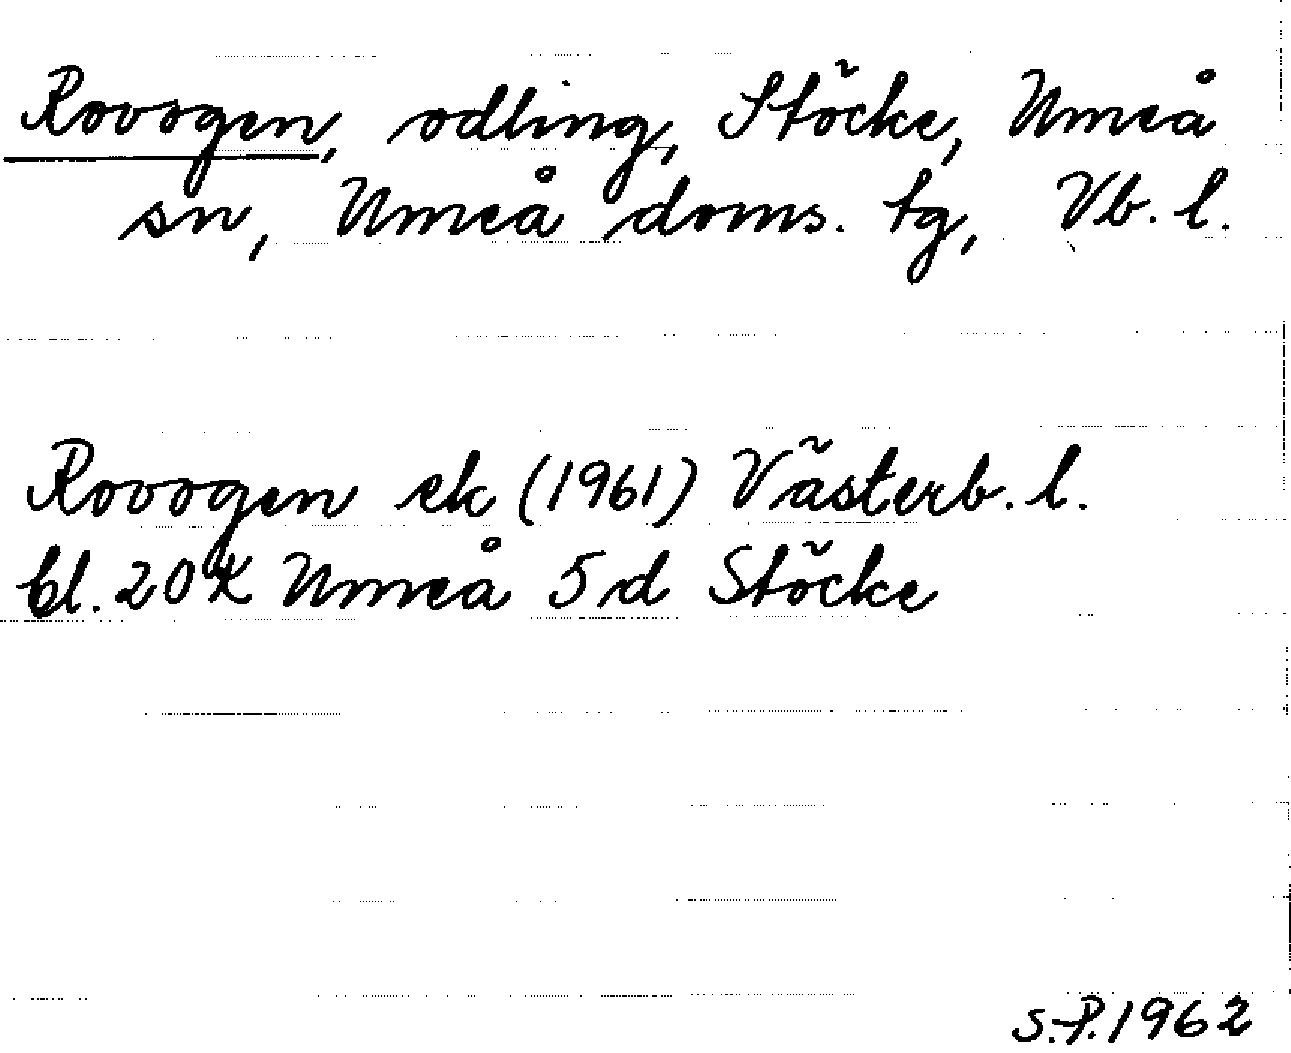 Rovogen, odling, Stöcke, Umeå
sn, Umeå doms. tg, Vb. l.
Rovogen ek (1961) Västerb. l.
bl. 20K Umeå 5d Stöcke
S.P. 1962